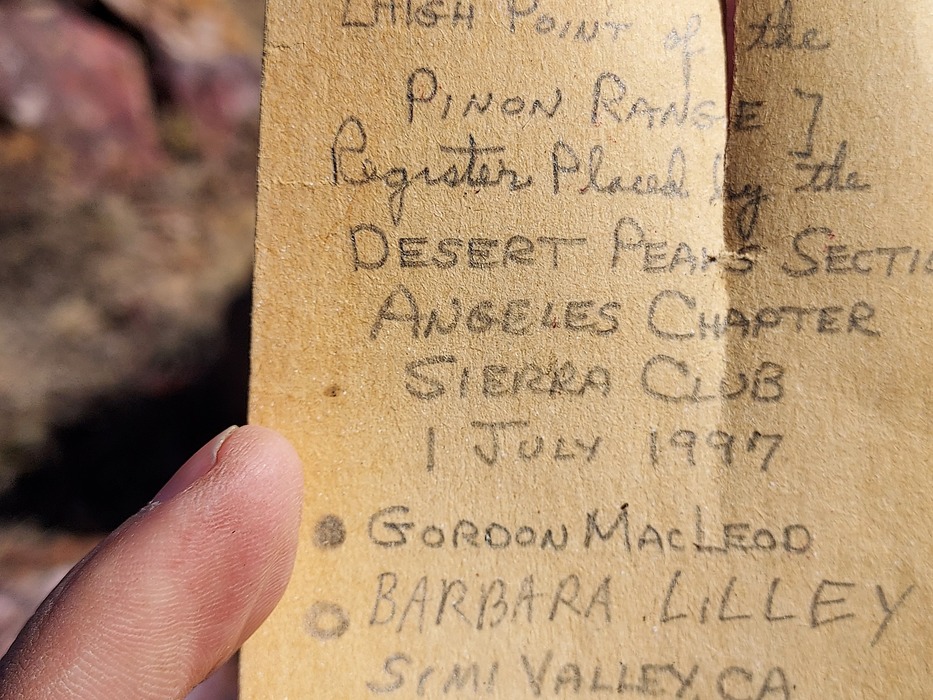 [HIGH POINT of the
PINON RANGE]
Register Placed by the
DESERT PEAKS SECTIO
ANGELES CHAPTER
SIERRA CLUB
1 JULY 1997
GORDON MACLEOD
BARBARA LILLEY
SIMI VALLEY, CA